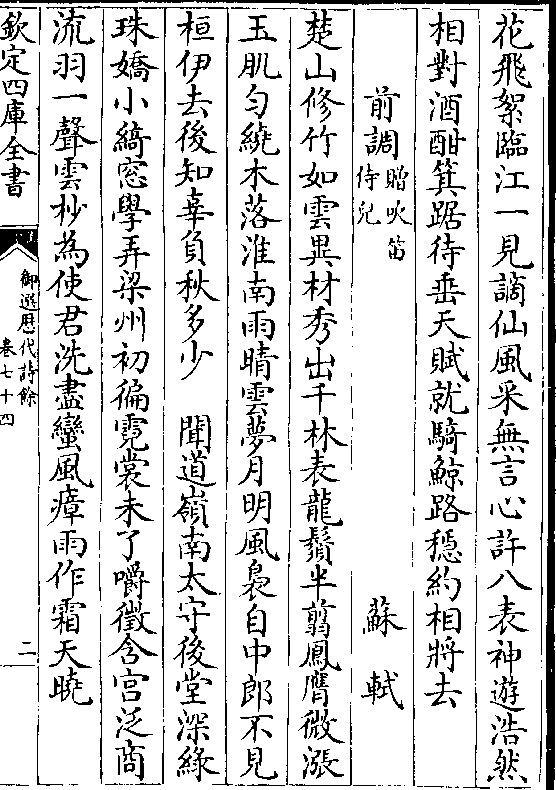 花飛絮臨江一見謫仙風采無言心許八表神遊浩然
相對酒酣箕踞待垂天賦就騎鯨路穩約相將去
前調贈吹笛侍兒 蘇軾
楚山修竹如雲異材秀出千林表龍鬚半翦鳳膺微漲
玉肌勻繞木落淮南雨晴雲夢月明風裊自中郎不見
桓伊去後知辜負秋多少 聞道嶺南太守後堂深綠
珠嬌小綺窓學弄梁州初徧霓裳未了嚼徵含宮泛商
流羽一聲雲杪為使君洗盡蠻風瘴雨作霜天曉
欽定四庫全書
御選歷代詩餘
卷七十四
二